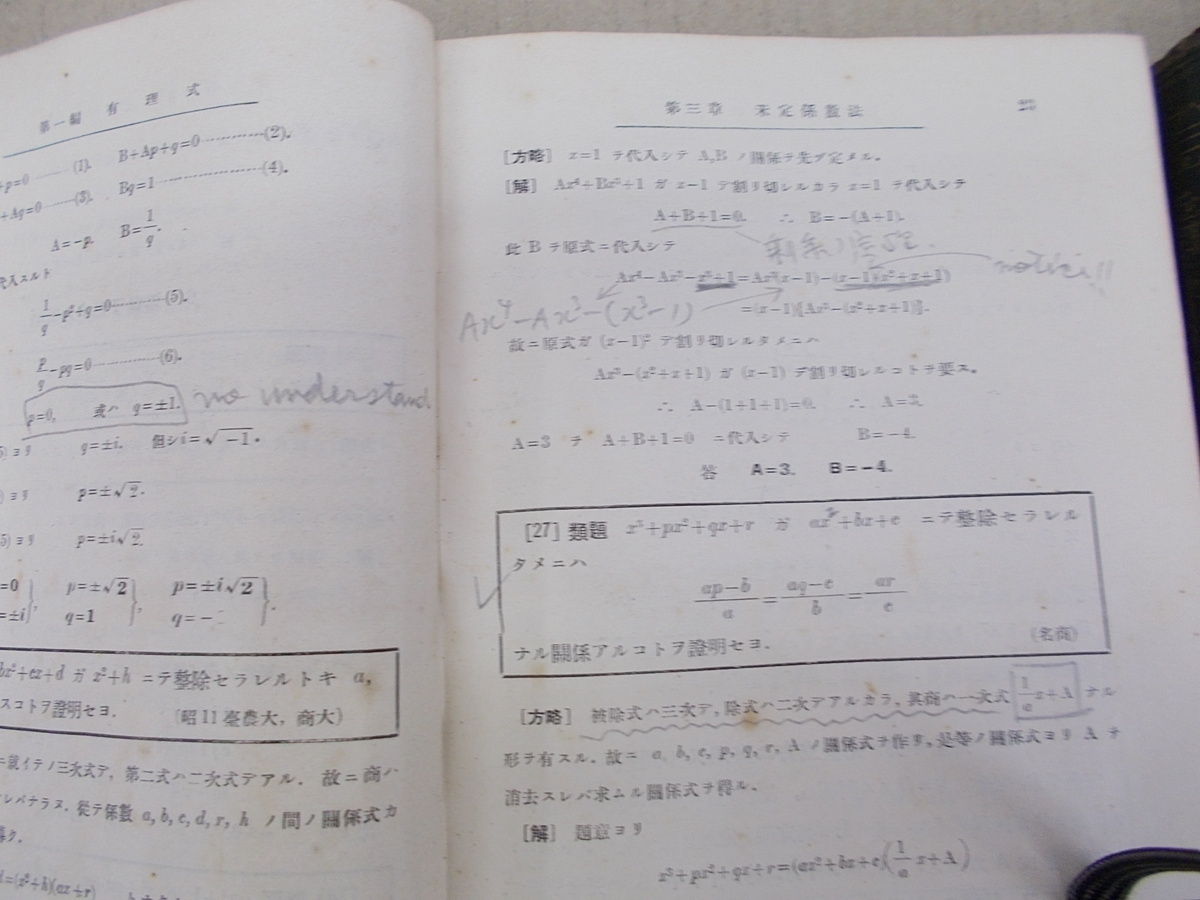 第一編 有理式
+p=0 ……(1). B+Ap+q=0…………(2).
+Aq=0 ……(3). Bq=1 ……………(4).
A=-p. B=1/q.
代入スルト
1/q-p²+q=0…………(5).
p/q-pq=0…………(6).
p=0, 或ハ q=±1. no understand.
5)ヨリ q=±i. 但シ i=√-1.
)ヨリ p=±√2.
5)ヨリ p=±i√2.
=0 p=±√2 p=±i√2
=±i}, q=1 }, q=- }.
bx²+cx+d ガ x²+h ニテ整除セラレルトキ a,
スコトヲ證明セヨ. (昭11臺農大, 商大)
ニ就イテノ三次式デ, 第二式ハ二次式デアル. 故ニ商ハ
レバナラヌ. 從テ係數 a, b, c, d, r, h ノ間ノ關係式ガ
=(x²+h)(ax+r)
第三章 未定係數法 25
[方略] x=1 ヲ代入シテ A,B ノ關係ヲ先ヅ定メル.
[解] Ax⁴+Bx³+1 ガ x-1 デ割リ切レルカラ x=1 ヲ代入シテ
A+B+1=0. ∴ B=-(A+1).
此 B ヲ原式ニ代入シテ 剰余ノ定理.
Ax⁴-Ax³-x³+1=Ax³(x-1)-(x-1)(x²+x+1) notice!!
Ax⁴-Ax³-(x³-1) =(x-1){Ax³-(x²+x+1)}.
故ニ原式ガ (x-1)² デ割リ切レルタメニハ
Ax³-(x²+x+1) ガ (x-1) デ割リ切レルコトヲ要ス.
∴ A-(1+1+1)=0. ∴ A=3.
A=3 ヲ A+B+1=0 ニ代入シテ B=-4.
答 A=3. B=-4.
[27] 類題 x³+px²+qx+r ガ ax²+bx+c ニテ整除セラレル
タメニハ
(ap-b)/a=(aq-c)/b=ar/c
ナル關係アルコトヲ證明セヨ. (名商)
[方略] 被除式ハ三次デ, 除式ハ二次デアルカラ, 其商ハ一次式 1/a x+A ナル
形ヲ有スル. 故ニ a, b, c, p, q, r, A ノ關係式ヲ作リ, 是等ノ關係式ヨリ A ヲ
消去スレバ求ムル關係式ヲ得ル.
[解] 題意ヨリ
x³+px²+qx+r=(ax²+bx+c)(1/a x+A)